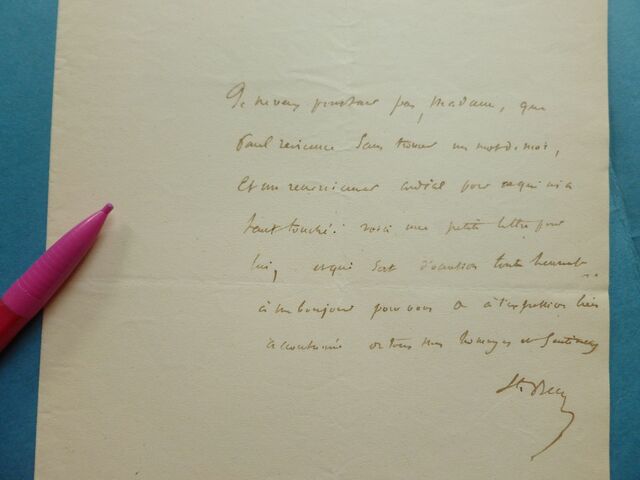 Je ne veux pourtant pas, Madame, que
Paul revienne sans trouver un mot de moi,
Et un remerciement cordial pour ce qui m'a
tant touché. voici une petite lettre pour
lui, et qui sert d'occasion toute
à un bonjour pour vous & à l'expression bien
accoutumée de tous mes hommages et Sentimens
Ste Beuve